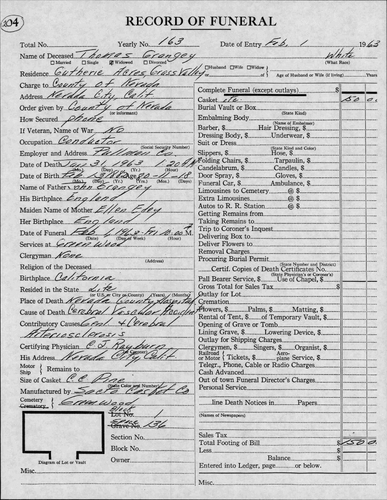 204
RECORD OF FUNERAL
Total No. Yearly No. 163 Date of Entry Feb. 1 1963
Name of Deceased Thomas Grangey White
Married Single Widowed Divorced (What Race)
Residence Gutherie Acres Grass Valley Husband Wife Widow of Age of Husband or Wife (if living) Years
Charge to County of Nevada
Address Nevada City Calif
Order given by County of Nevada
How Secured phone
If Veteran, Name of War No
Occupation Conductor
(Social Security Number)
Employer and Address Pullman Co.
Date of Death Jan. 31, 1963
Date of Birth
Name of Father John Grangey
His Birthplace England
Maiden Name of Mother Ellen Edey
Her Birthplace England
Date of Funeral Feb 1963 Fri. 10:00 A.M.
Services at Greenwood
Clergyman None
(Address)
Religion of the Deceased
Birthplace California
Resided in the State Life
Place of Death Nevada County Hospital
Cause of Death Cerebral Vascular Accident
Contributory Causes Gen. & Cerebral
Arteriosclerosis
Certifying Physician C. J. Rayburn
His Address Nevada City, Calif
Motor Ship Remains to
Size of Casket C.C. Pine
Manufactured by Sacto Casket Co
Cemetery Crematory Greenwood
Lot No. 1
Grave No. 136
Section No.
Block No.
Owner
Diagram of Lot or Vault
Misc.
Complete Funeral (except outlays) $
Casket etc. 150 0
Burial Vault or Box
(State Kind)
Embalming Body
(Name of Embalmer)
Barber, $ Hair Dressing, $
Dressing Body, $ Underwear, $
Suit or Dress
(State Kind and Color)
Slippers, $ Hose, $
Folding Chairs, $ Tarpaulin, $
Candelabrum, $ Candles, $
Door Spray, $ Gloves, $
Funeral Car, $ Ambulance, $
Limousines to Cemetery @ $
Extra Limousines @ $
Autos to R. R. Station @ $
Getting Remains from
Taking Remains to
Trip to Coroner's Inquest
Delivering Box to
Deliver Flowers to
Removal Charges
Procuring Burial Permit
Certif. Copies of Death Certificates No.
Pall Bearer Service, $ Use of Chapel, $
Gross Total for Sales Tax $
Outlay for Lot
Cremation
Flowers, $ Palms, $ Matting, $
Rental of Tent, $ of Temporary Vault, $
Opening of Grave or Tomb
Lining Grave, $ Lowering Device, $
Outlay for Shipping Charges
Clergymen, $ Singers, $ Organist, $
Railroad or Motor Tickets, $ Aeroplane Service, $
Telegr., Phone, Cable or Radio Charges
Cash Advanced
Out of town Funeral Director's Charges
Personal Service
line Death Notices in Papers
(Names of Newspapers)
Sales Tax
Total Footing of Bill $ 150 0
Less $
Balance $
Entered into Ledger, page or below.
Misc.